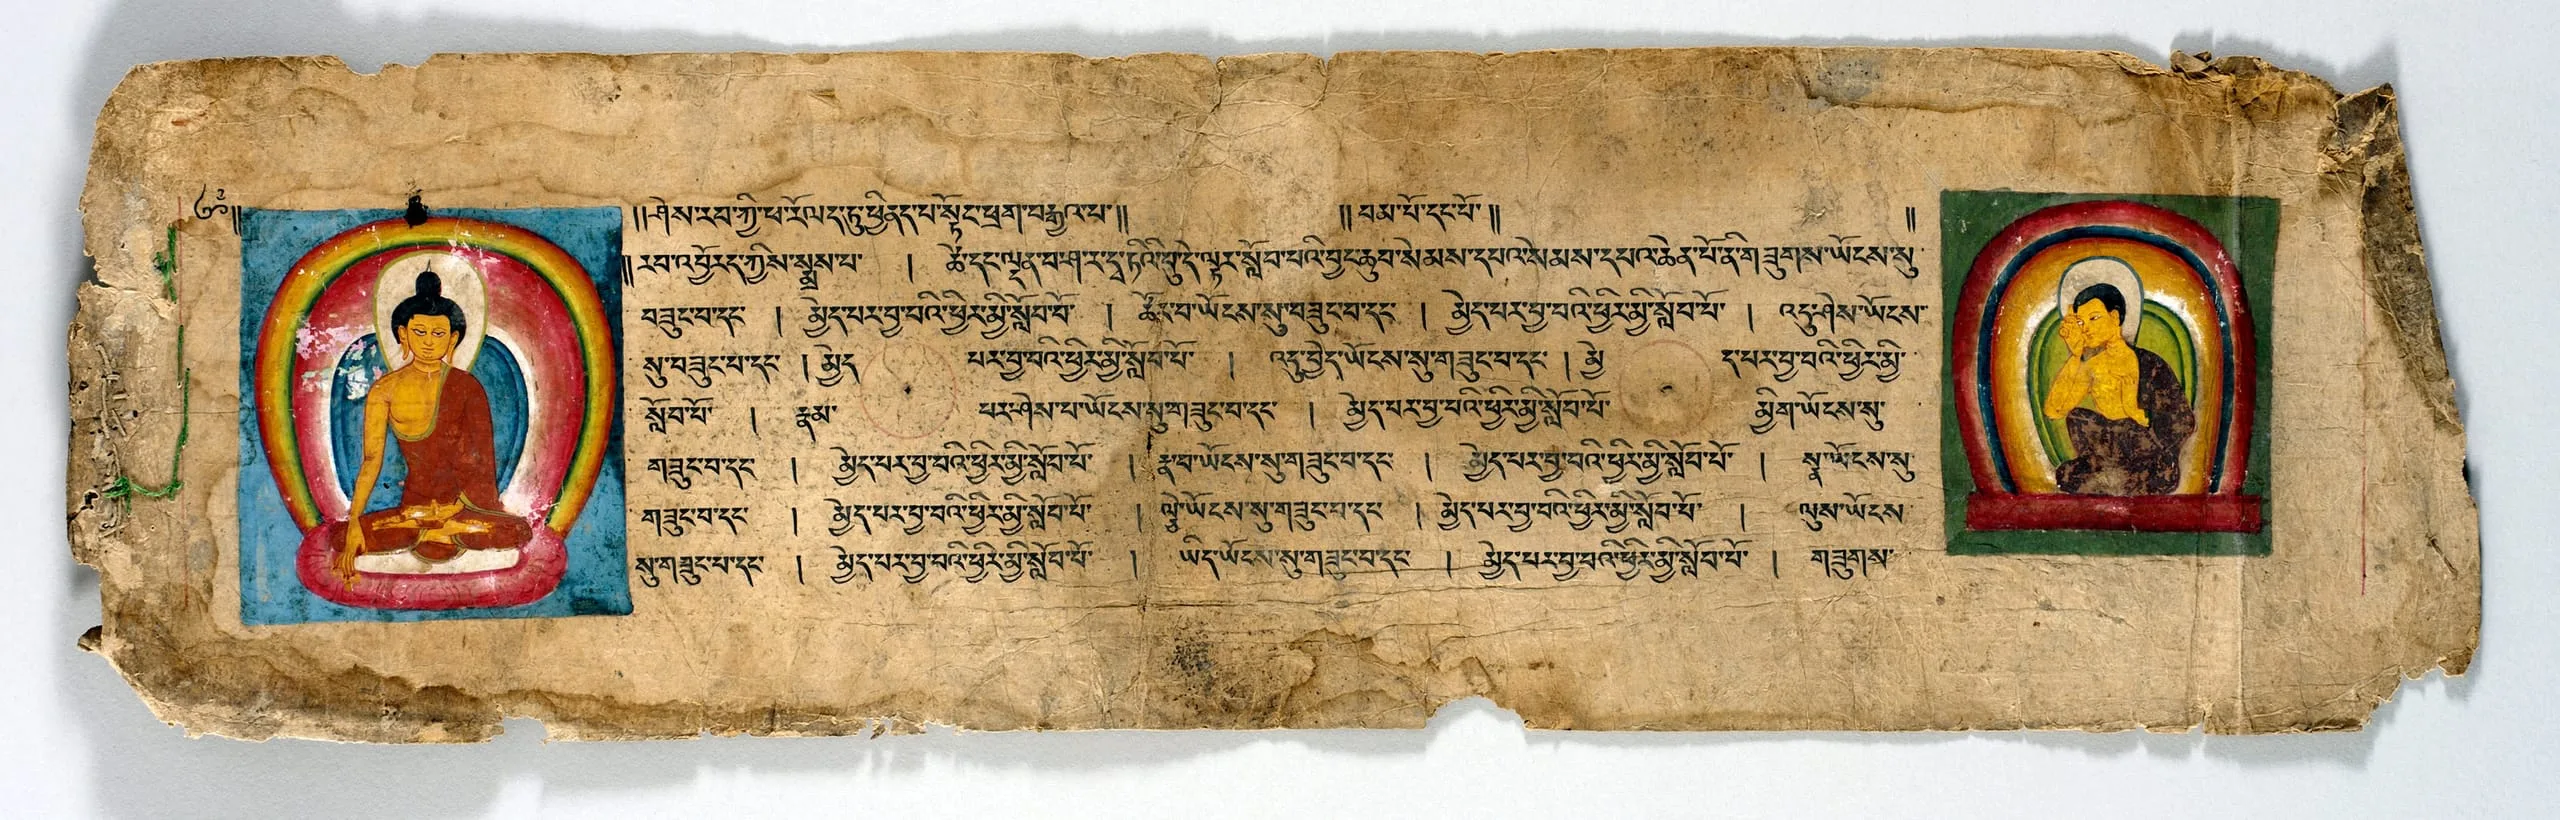 ༄༅།། །།ཤེས་རབ་ཀྱི་ཕ་རོལ་ད་ཏུ་ཕྱིནད་པ་སྟོང་ཕྲག་བརྒྱའ་པ།། །།བམ་པོ་དང་པོ།། །།
།།རབ་འབྱོརད་ཀྱིས་སྨྲས་པ་ །ཚེ་དང་ལྡན་བ་ཤ་ར་དྭ་ཏིའི་བུ་དེ་ལྟར་སློབ་པའི་བྱང་ཆུབ་སེམས་དཔའ་སེམས་དཔའ་ཆེན་པོ་ནི་གཟུགས་ཡོངས་སུ་
བཟུང་བ་དང་ །མྱེད་པར་བྱ་བའི་ཕྱིར་མྱི་སློབ་པོ་ །ཚོར་བ་ཡོངས་སུ་བཟུང་བ་དང་ །མྱེད་པར་བྱ་བའི་ཕྱིར་མྱི་སློབ་པོ་ །འདུ་ཤེས་ཡོངས་
སུ་བཟུང་བ་དང་ །མྱེད་པར་བྱ་བའི་ཕྱིར་མྱི་སློབ་པོ་ །འདུ་བྱེད་ཡོངས་སུ་གཟུང་བ་དང་ །མྱེད་པར་བྱ་བའི་ཕྱིར་མྱི་
སློབ་པོ་ །རྣམ་པར་ཤེས་པ་ཡོངས་སུ་གཟུང་བ་དང་ །མྱེད་པར་བྱ་བའི་ཕྱིར་མྱི་སློབ་པོ་ མྱིག་ཡོངས་སུ་
གཟུང་བ་དང་ །མྱེད་པར་བྱ་བའི་ཕྱིར་མྱི་སློབ་པོ་ །རྣ་བ་ཡོངས་སུ་གཟུང་བ་དང་ །མྱེད་པར་བྱ་བའི་ཕྱིར་མྱི་སློབ་པོ་ །སྣ་ཡོངས་སུ་
གཟུང་བ་དང་ །མྱེད་པར་བྱ་བའི་ཕྱིར་མྱི་སློབ་པོ་ །ལྕེ་ཡོངས་སུ་གཟུང་བ་དང་ །མྱེད་པར་བྱ་བའི་ཕྱིར་མྱི་སློབ་པོ་ །ལུས་ཡོངས་
སུ་གཟུང་བ་དང་ །མྱེད་པར་བྱ་བའི་ཕྱིར་མྱི་སློབ་པོ་ །ཡིད་ཡོངས་སུ་གཟུང་བ་དང་ །མྱེད་པར་བྱ་བའི་ཕྱིར་མྱི་སློབ་པོ་ །གཟུགས་